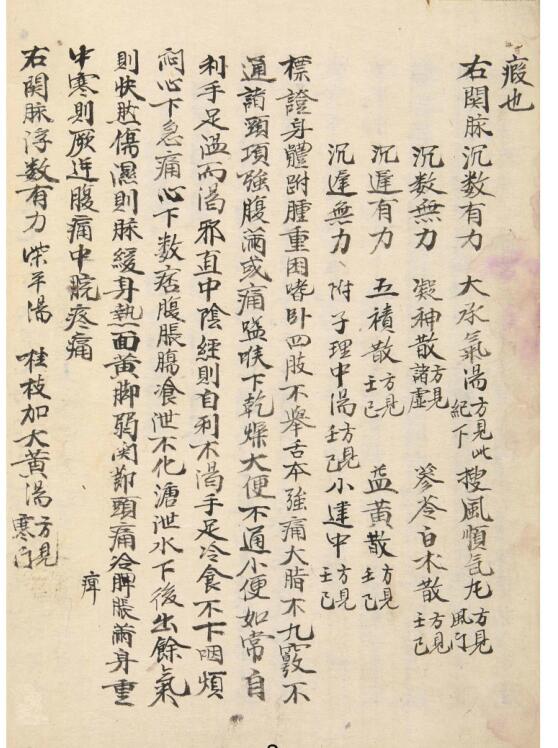 瘕也
右関脉沉数有力 大承氣湯方見此紀下 搜風順氣丸方見風门
沉数無力 凝神散方見諸虛 參苓白术散方見壬己
沉遲有力 五積散方見壬己 益黄散方見壬己
沉遲無力、附子理中湯方見壬己 小建中方見壬己
標證身體跗腫重困嗜卧四肢不舉舌本強痛大脂不九竅不
通諸頸項強腹滿或痛隘喉下乾燥大便不通小便如常自
利手足溫而渴邪直中陰經則自利不渴手足冷食不下咽煩
心下急痛心下数痞腹脹腸飡泄不化溏泄水下後出餘氣
則快然傷濕則脉緩身熱面黄脚弱関節頭痛冷脾脹滿身重
痺
中寒則厥逆腹痛中脘疼痛
右関脉浮数有力 柴平湯 桂枝加大黄湯方見寒门